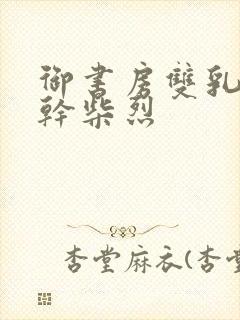 御書房雙乳
幹柴烈
杏堂麻衣(杏堂